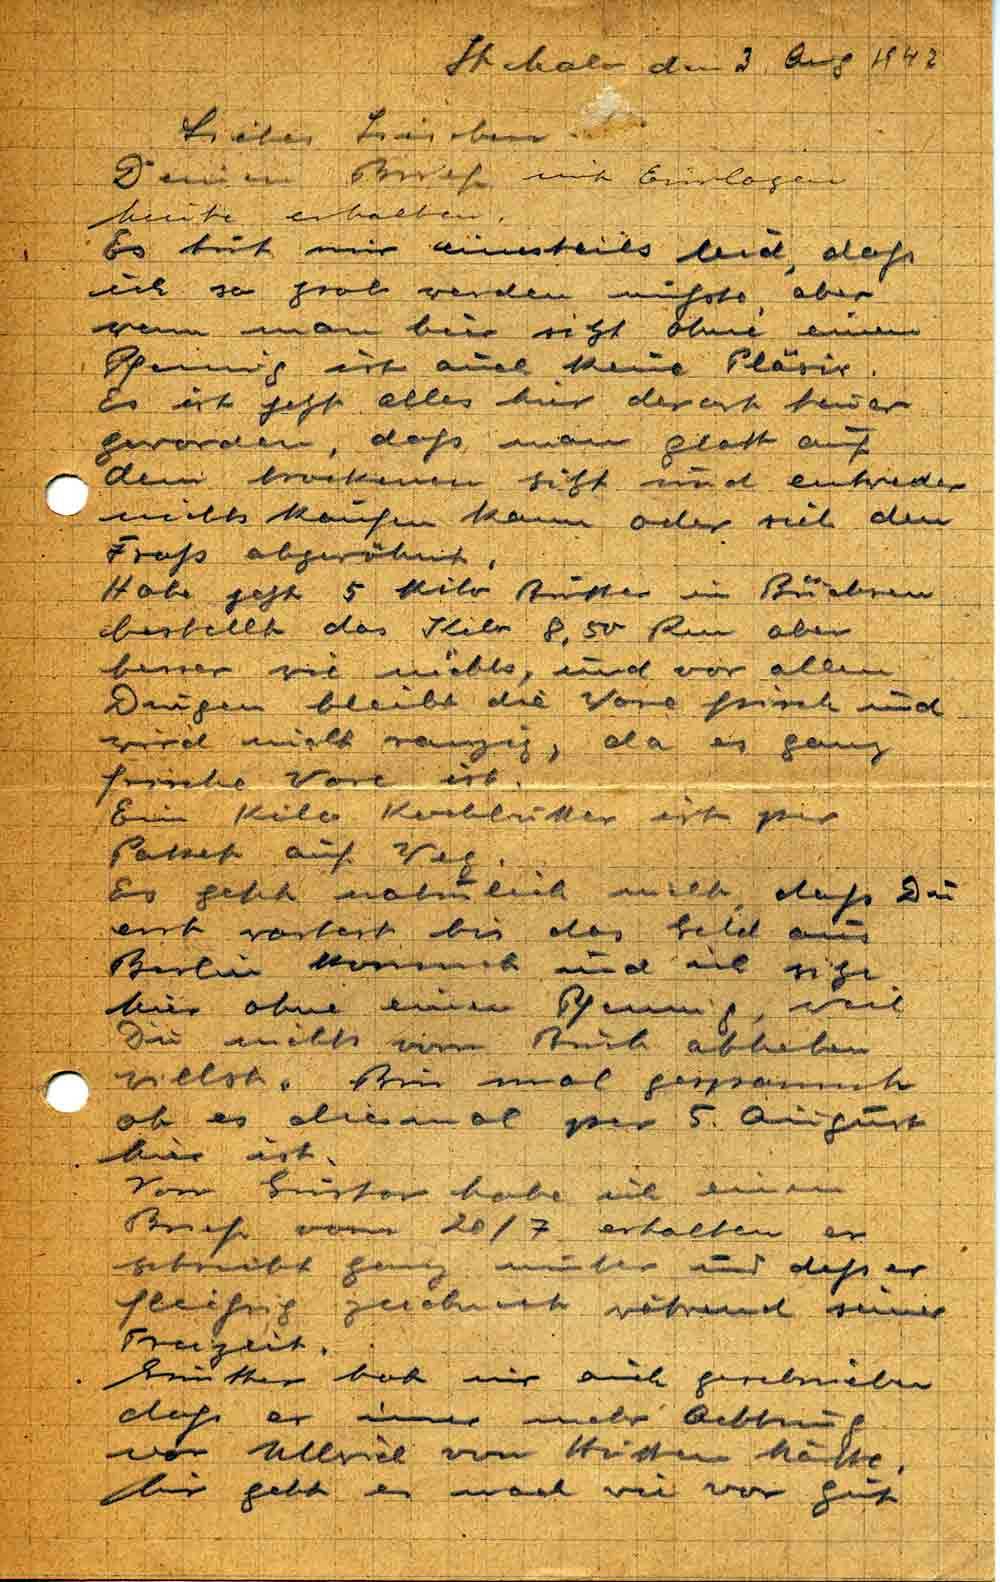 St Malo den 3. Aug 1942
Liebes Lieschen
Deinen Brief mit Einlagen
heute erhalten.
Es tut mir einesteils leid, dass
ich so grob werden musste, aber
wenn man hier sitzt ohne einen
Pfennig ist auch keine Pläsir.
Es ist jetzt alles hier derart teuer
geworden, dass man glatt auf
dem trockenen sitzt und entweder
nichts kaufen kann oder sich den
Frass abgewöhnt.
Habe jetzt 5 Kilo Butter in Büchsen
bestellt das Kilo 8,50 Rm aber
besser wie nichts, und vor allen
Dingen bleibt die Ware frisch und
wird nicht ranzig, da es ganz
frische Ware ist.
Ein Kilo Kochbutter ist per
Packet auf Weg.
Es geht natürlich nicht, dass Du
erst wartest bis das Geld aus
Berlin kommt und ich sitze
hier ohne einen Pfennig, weil
Du nichts vom Buch abheben
willst. Bin mal gespannt
ob es diesmal per 5. August
hier ist.
Von Gustav habe ich einen
Brief vom 20/7 erhalten er
schreibt ganz munter und dass er
fleissig zeichnet während seiner
Freizeit.
Günther hat mir auch geschrieben
dass er immer mehr Achtung
vor Ullrich von Hutten hätte.
Mir geht es nach wie vor gut